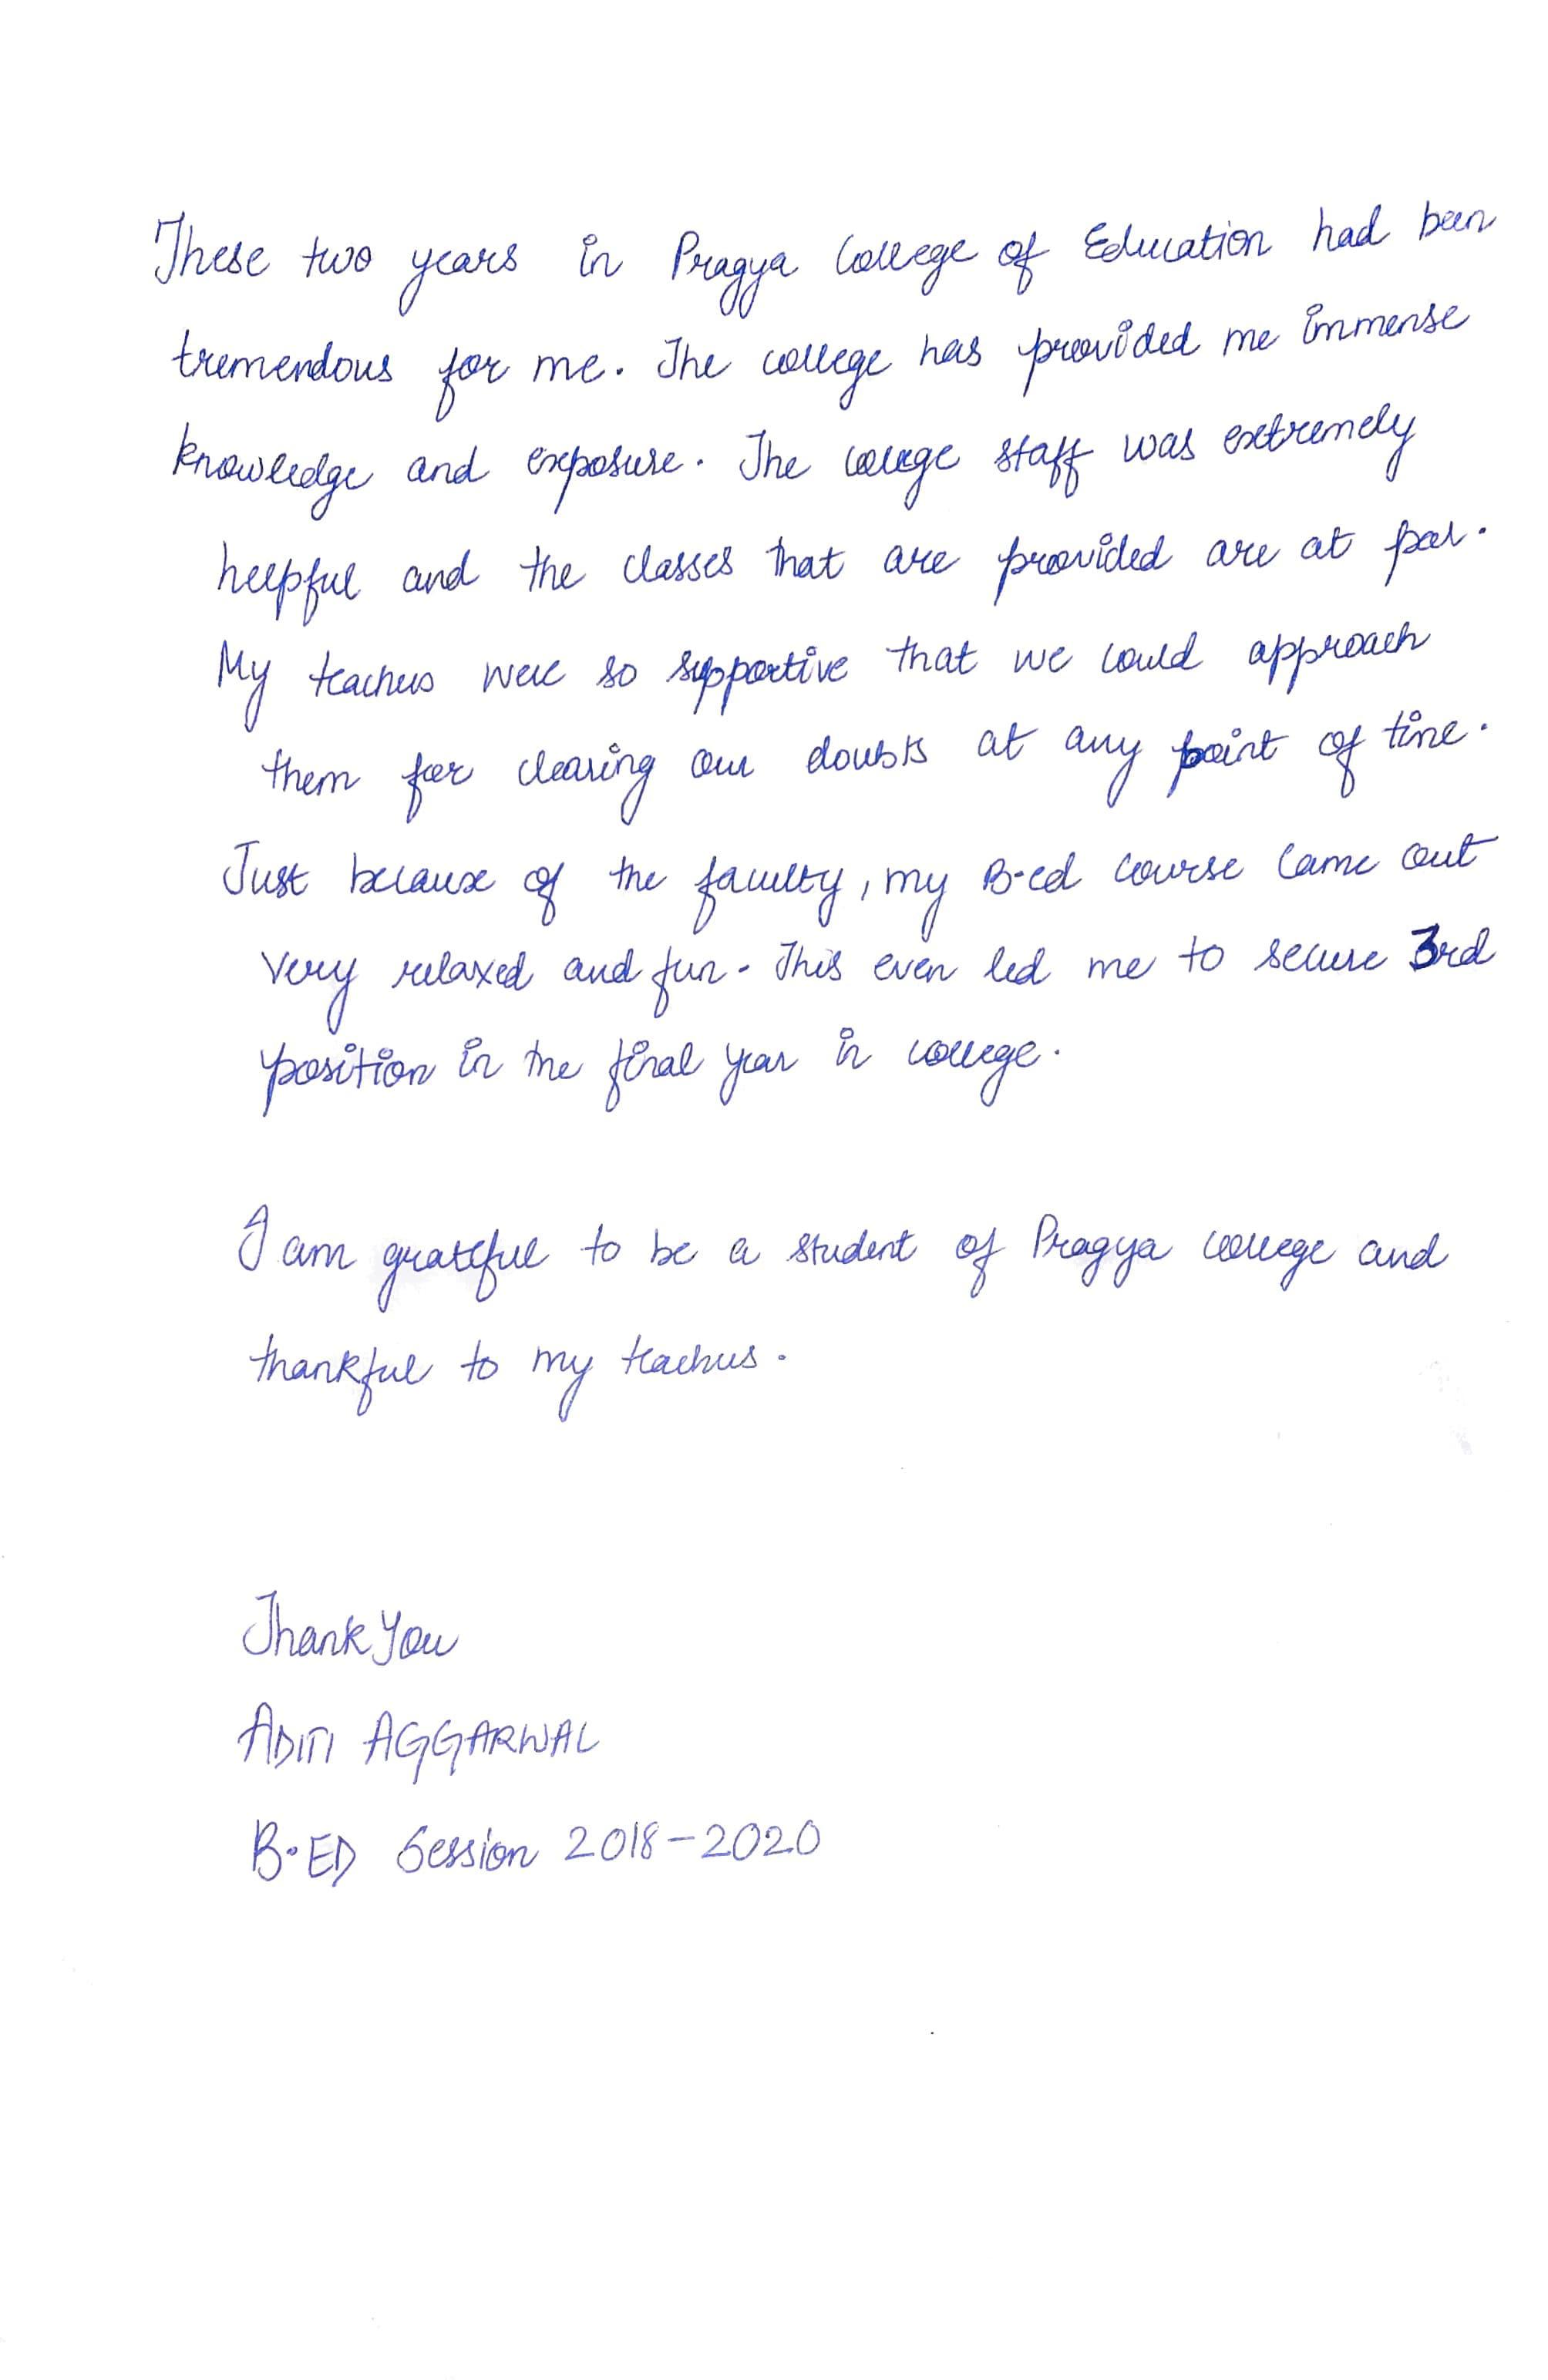 These two years in Pragya College of Education had been
tremendous for me. The college has provided me immense
knowledge and exposure. The college staff was extremely
helpful and the classes that are provided are at par.
My teachers were so supportive that we could approach
them for clearing our doubts at any point of time.
Just because of the faculty, my B-ed course came out
very relaxed and fun. This even led me to secure 3rd
position in the final year in college.
I am grateful to be a student of Pragya college and
thankful to my teachers.
Thank You
ADITI AGGARWAL
B.ED Session 2018-2020